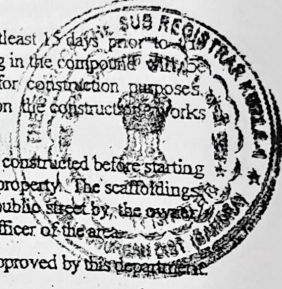 atleast 15 days prior to
g in the compound
for construction purposes.
on the construction works
constructed before starting
property. The scaffoldings
public street by, the owner/
officer of the area
approved by this department.
THE SUB REGISTRAR